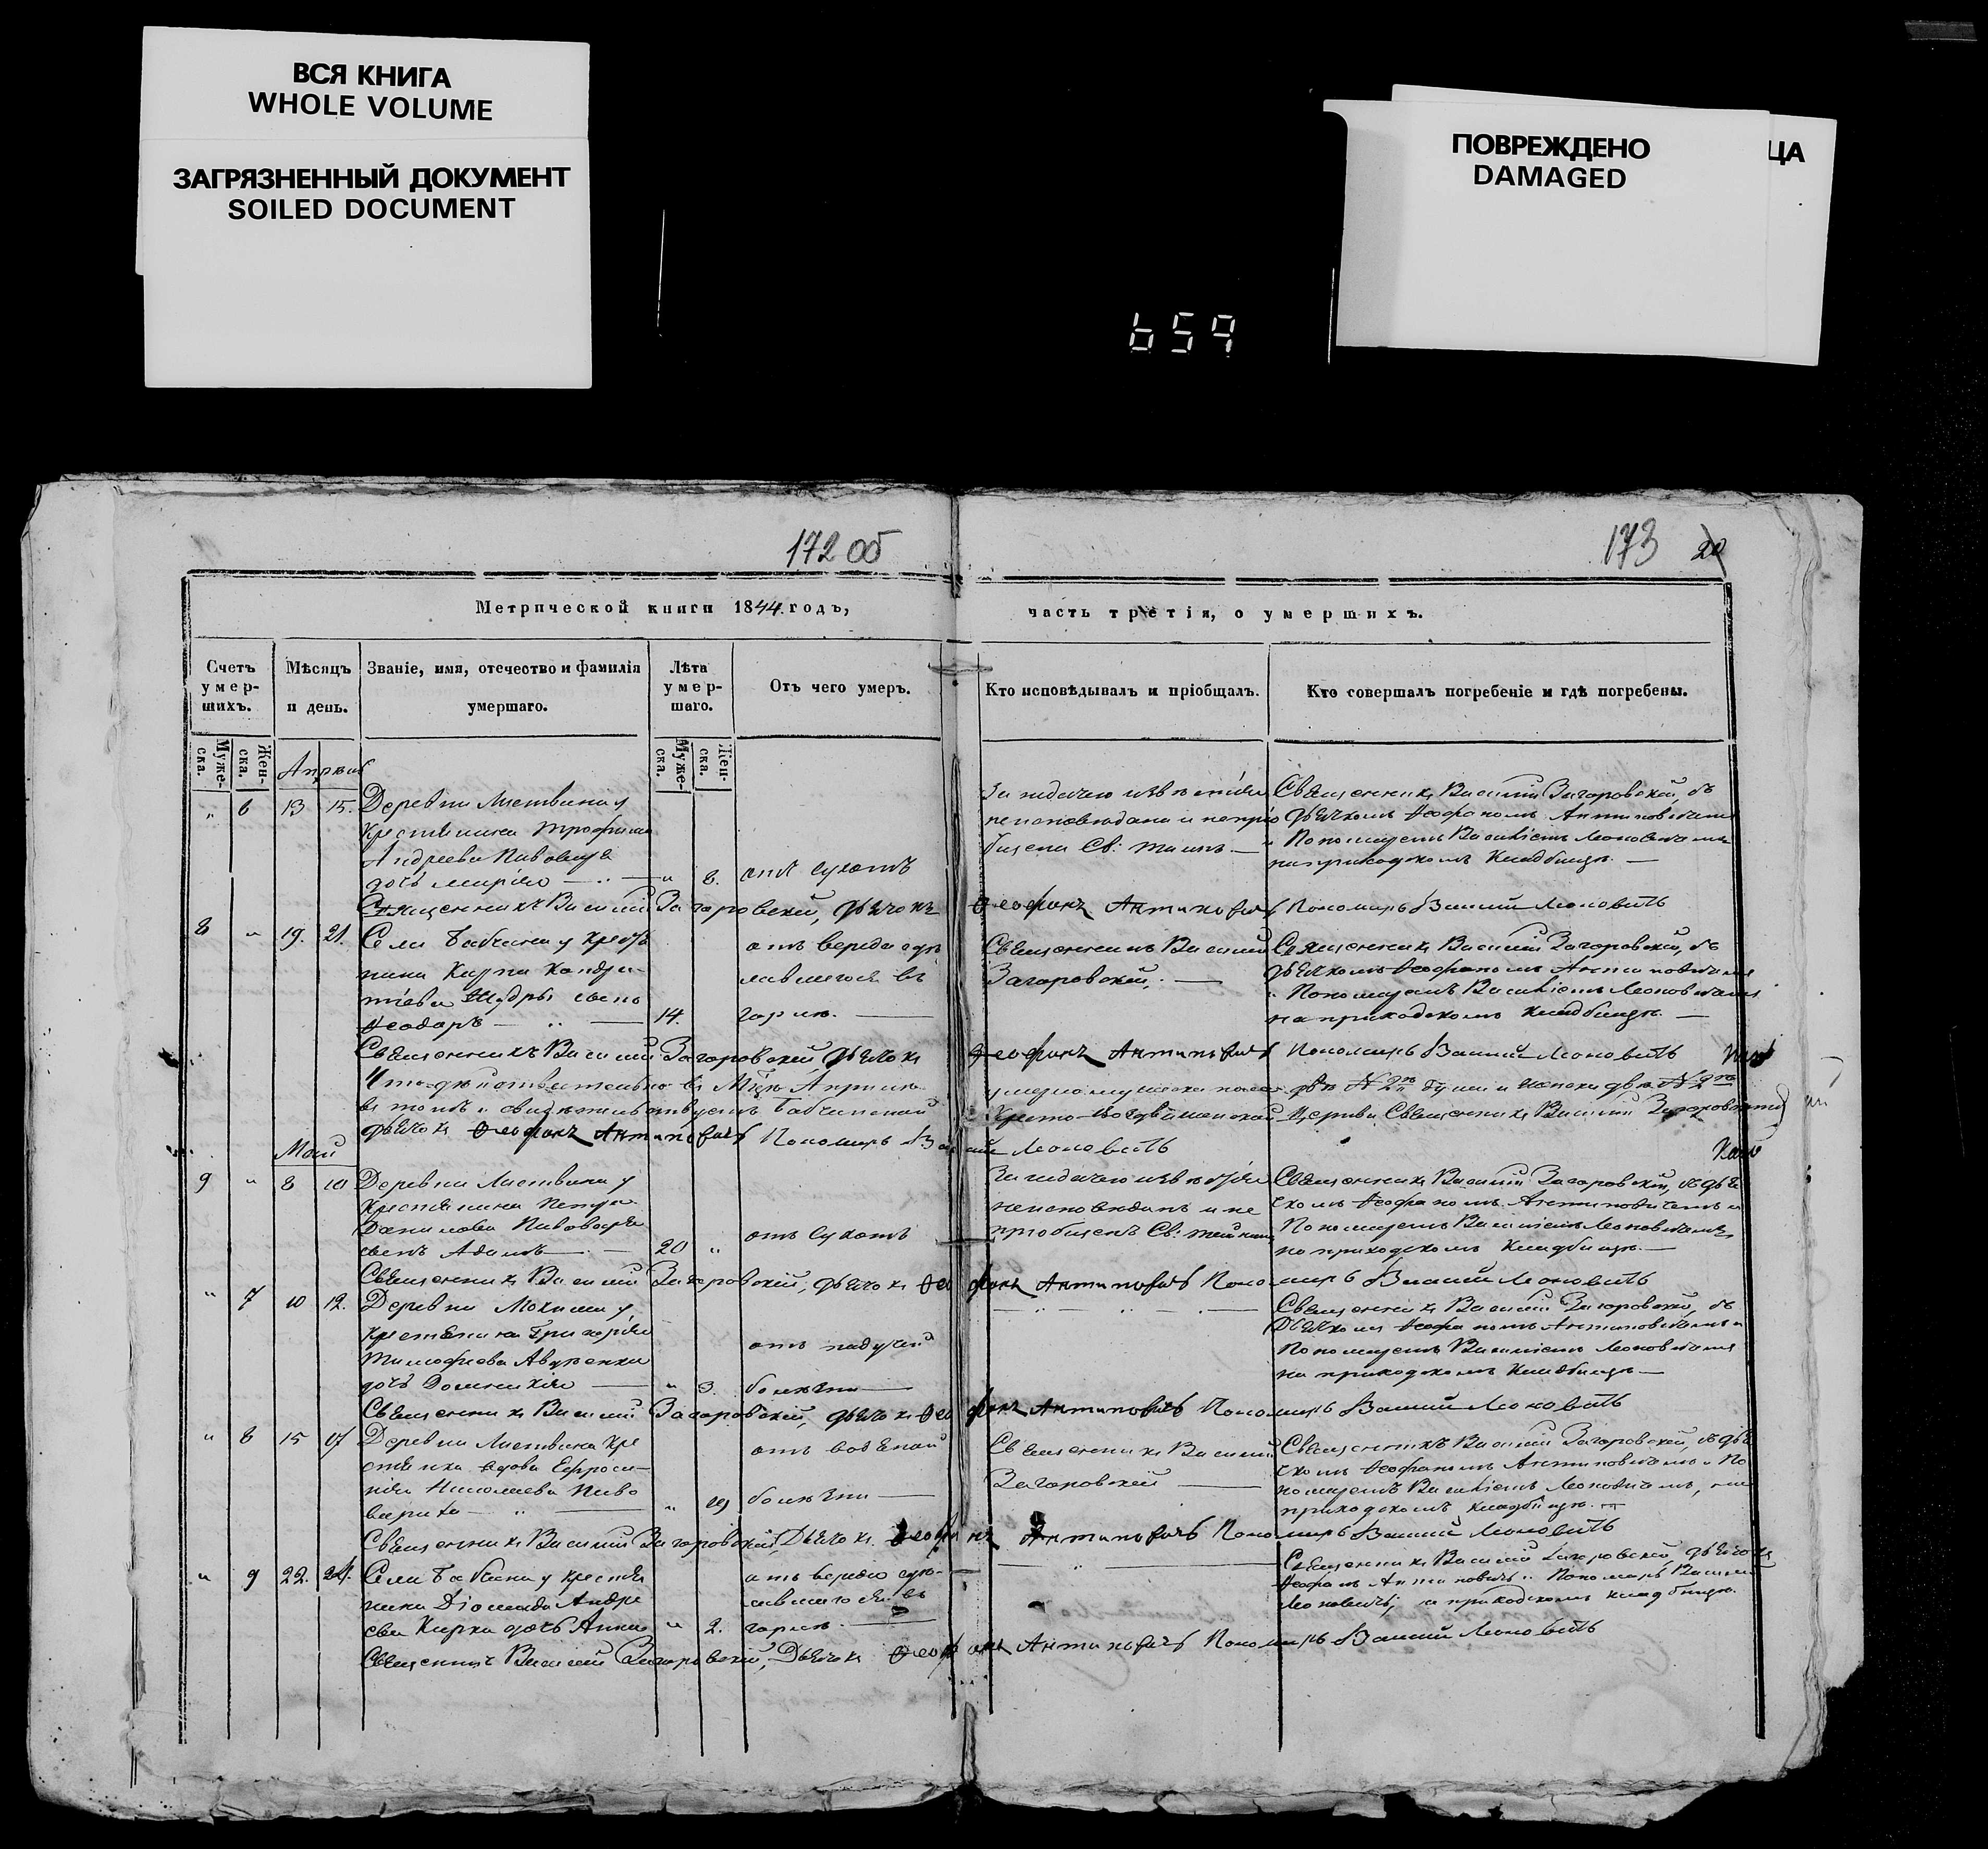 ВСЯ КНИГА
WHOLE VOLUME
ЗАГРЯЗНЕННЫЙ ДОКУМЕНТ
SOILED DOCUMENT
ПОВРЕЖДЕНО
DAMAGED
ЦА
659
172 об
173 20
Метрической книги 1844 годъ,
часть третія, о умершихъ.
Счетъ умер-шихъ.
Мѣсяцъ и день.
Званіе, имя, отечество и фамилія умершаго.
Лѣта умер-шаго.
Отъ чего умеръ.
Кто исповѣдывалъ и пріобщалъ.
Кто совершалъ погребеніе и гдѣ погребены.
Муже-ска.
Жен-ска.
Муже-ска.
Жен-ска.
Апрѣль
„ 6 13 15. Деревни Листвина у
крестьянина Трофима
Андреева Пивовара
дочь Марія — „ 8. отъ сухотъ
не исповѣдана и неприо
бщена Св: Таинъ. —
Священникъ Василій Загоровскій, съ
дьячкомъ Ѳеофаномъ Антиповичемъ
и Пономаремъ Василіемъ Леоновичемъ
на приходскомъ кладбищѣ. —
Священникъ Василій Загоровскій, дьячокъ Ѳеофанъ Антиповичъ Пономарь Василій Леоновичъ
8 „ 19. 21. Села Бабчина у кресть
нина Карпа Кондра-
тіева Шудры сынъ
Ѳеодоръ — 14.
отъ вереда сдѣ
лавшагося въ
горлѣ. —
Священникъ Василій
Загоровскій. —
Священникъ Василій Загоровскій, съ
дьячкомъ Ѳеофаномъ Антиповичемъ
и Пономаремъ Василіемъ Леоновичемъ
на приходскомъ кладбищѣ. —
Священникъ Василій Загоровскій, дьячокъ Ѳеофанъ Антиповичъ Пономарь Василій Леоновичъ
Что дѣйствительно въ Мцѣ Апрѣлѣ
въ томъ и свидѣтельствуемъ Бабчинской
Церкви Священникъ Василій Загоровскій
дьячокъ Ѳеофанъ Антиповичъ Пономарь Василій Леоновичъ
Май
9 „ 8 10 Деревни Листвина у
крестьянина Петра
Данилова Пивовара
сынъ Адамъ — 20 „ отъ сухотъ
не исповѣданъ и не
пріобщенъ Св: Таинъ
Священникъ Василій Загоровскій, съ дья
чкомъ Ѳеофаномъ Антиповичемъ и
Пономаремъ Василіемъ Леоновичемъ
на приходскомъ кладбищѣ. —
Священникъ Василій Загоровскій, дьячокъ Ѳеофанъ Антиповичъ Пономарь Василій Леоновичъ
„ 7 10 12. Деревни у
крестьянина Григорія
Тимофеева Авраменка
дочь Домникія — „ 3.
отъ падучей
болѣзни —
Священникъ Василій Загоровскій, съ
Дьячкомъ Ѳеофаномъ Антиповичемъ и
Пономаремъ Василіемъ Леоновичемъ
на приходскомъ кладбищѣ —
Священникъ Василій Загоровскій, дьячокъ Ѳеофанъ Антиповичъ Пономарь Василій Леоновичъ
„ 8 15 17 Деревни Листвина кре
стьянка вдова Ефроси-
нія Николаева Пиво
вариха — „
отъ водяной
болѣзни —
Священникъ Василій
Загоровскій —
Священникъ Василій Загоровскій, съ дья
чкомъ Ѳеофаномъ Антиповичемъ и По
номаремъ Василіемъ Леоновичемъ, на
приходскомъ кладбищѣ. —
Священникъ Василій Загоровскій, Дьячокъ Ѳеофанъ Антиповичъ Пономарь Василій Леоновичъ
„ 9 22. 24. Села Бабчина у крестья
нина Діомида Андре
ева Кирка дочь Анна „ 2.
отъ вереда сдѣ-
лавшагося въ
горлѣ. —
Священникъ Василій Загоровскій, дьячокъ
Ѳеофанъ Антиповичъ и Пономарь Василій
Леоновичъ, на приходскомъ кладбищѣ.
Священникъ Василій Загоровскій, Дьячокъ Ѳеофанъ Антиповичъ Пономарь Василій Леоновичъ